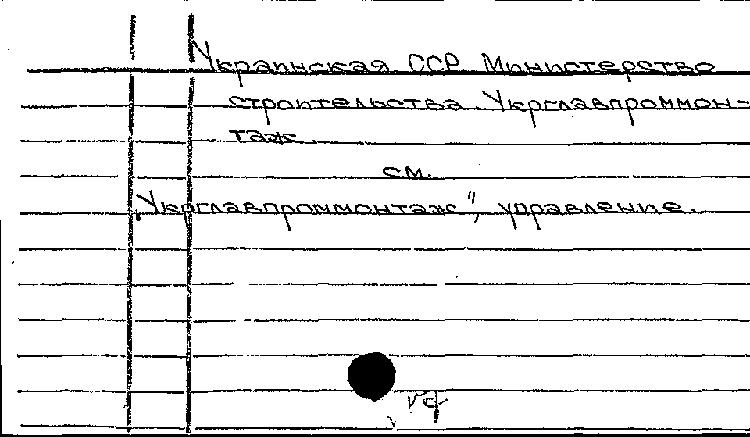 Украинская ССР Министерство
строительства. Укрглавпроммон-
таж.
см.
"Укрглавпроммонтаж", управление.